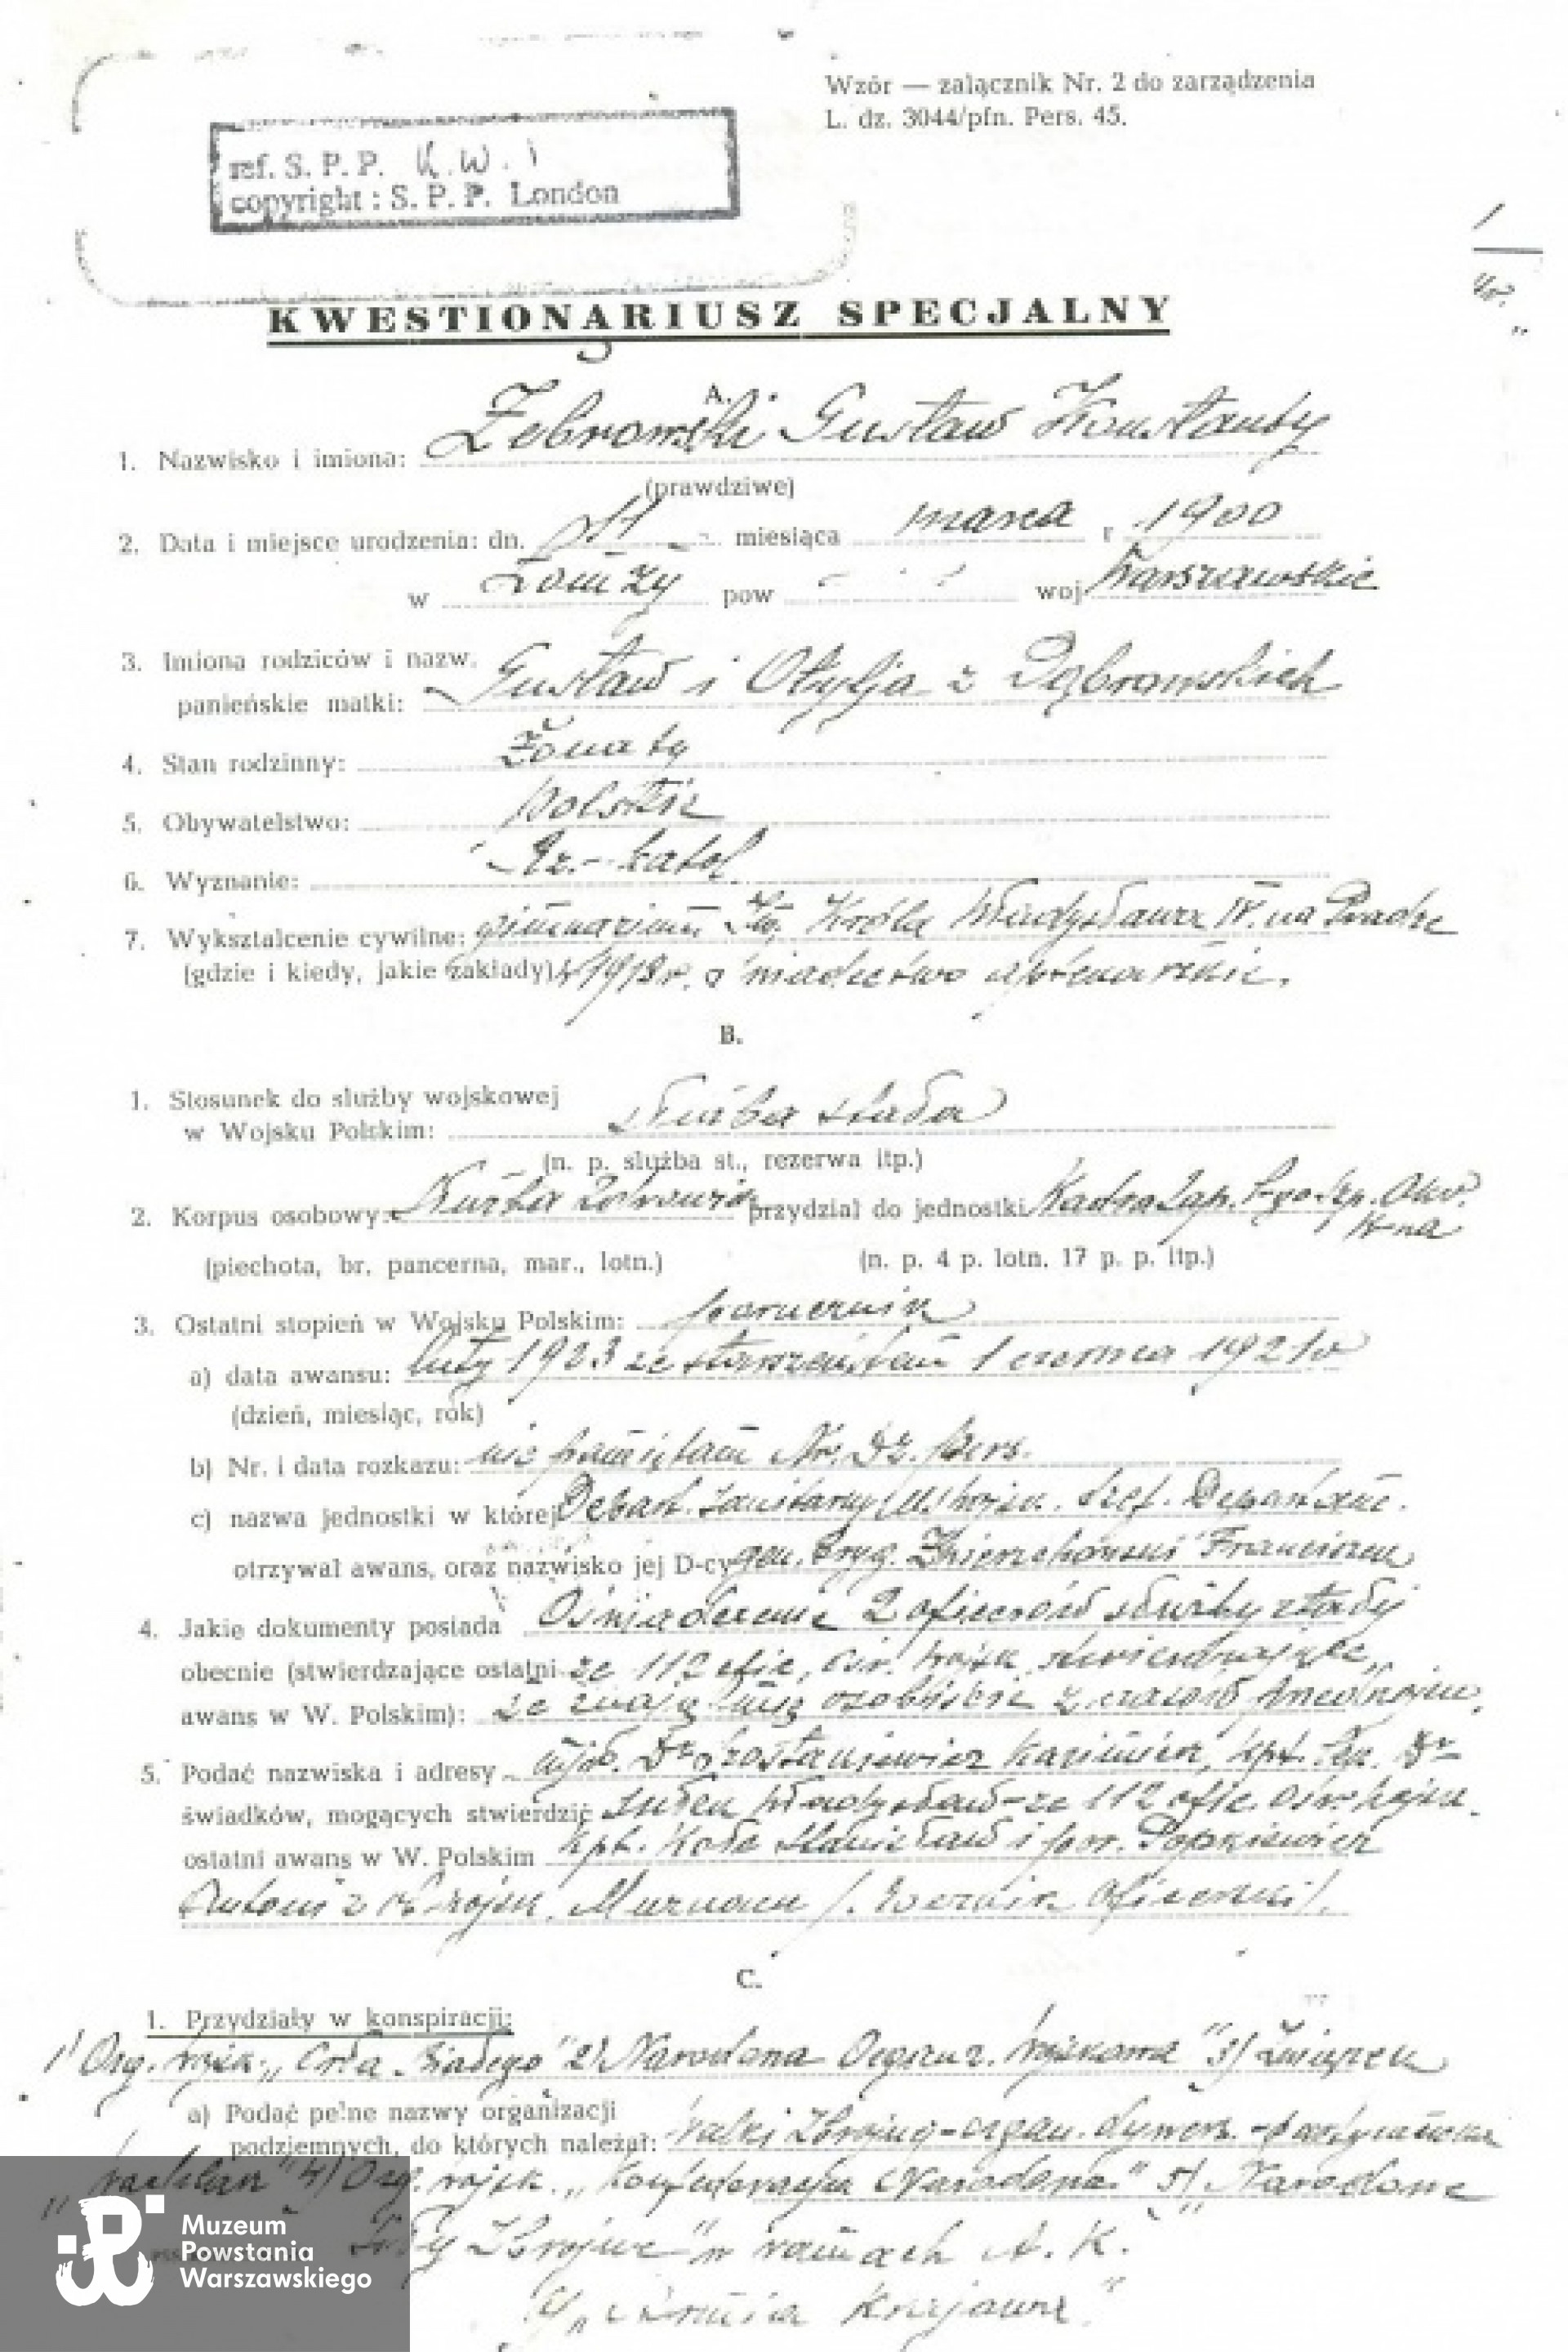 Wzór — załącznik Nr. 2 do zarządzenia
L. dz. 3044/pfn. Pers. 45.
ref. S. P. P. (K.W.)
copyright : S. P. P. London
1
KWESTIONARIUSZ SPECJALNY
A.
1. Nazwisko i imiona: Żebrowski Gustaw Konstanty
(prawdziwe)
2. Data i miejsce urodzenia: dn. miesiąca marca r 1900
w Łomży pow woj Warszawskie
3. Imiona rodziców i nazw.
panieńskie matki: Gustaw i Otylja z Dąbrowskich
4. Stan rodzinny: Żonaty
5. Obywatelstwo: Polskie
6. Wyznanie: Rz.-katol
7. Wykształcenie cywilne: gimnazium Im. Króla Władysława IV. na Pradze
(gdzie i kiedy, jakie zakłady) w 1918 r. świadectwo
B.
1. Stosunek do służby wojskowej
w Wojsku Polskim: służba stała
(n. p. służba st., rezerwa itp.)
2. Korpus osobowy: Służba zdrowia przydział do jednostki Kadra Zap. Szp. Okr.
(piechota, br. pancerna, mar., lotn.) (n. p. 4 p. lotn. 17 p. p. itp.)
3. Ostatni stopień w Wojsku Polskim: porucznik
a) data awansu: luty 1923 ze starszeństwem 1 czerwca 1921 r
(dzień, miesiąc, rok)
b) Nr. i data rozkazu: nie pamiętam Nr. Dz. Pers.
c) nazwa jednostki w której Depart. Sanitarny Szef. Departam.
otrzymał awans, oraz nazwisko jej D-cy gen. bryg. Zwierzchowski Franciszek
4. Jakie dokumenty posiada Oświadczenie 2 oficerów służby stałej
obecnie (stwierdzające ostatni ze 112 ofic. stwierdzające,
awans w W. Polskim): że znają mię osobiście z czasów
5. Podać nazwiska i adresy Dr Kazimierz, kpt. Dr
świadków, mogących stwierdzić Władysław - ze 112 ofic.
ostatni awans w W. Polskim kpt. Stanisław i por. Popkiewicz
Antoni z Murnau
C.
1. Przydziały w konspiracji:
1) Org. wojsk. „Orła Białego" 2) Narodowa Organiz. Wojskowa" 3) Związek
a) Podać pełne nazwy organizacji
podziemnych, do których należał: Walki Zbrojnej - organ. dywers.
„Wachlarz" 4) Org. wojsk. „Konfederacja Narodowa" 5) „Narodowe
Siły Zbrojne" w ramach A. K.
„Armia Krajowa"
Muzeum
Powstania
Warszawskiego